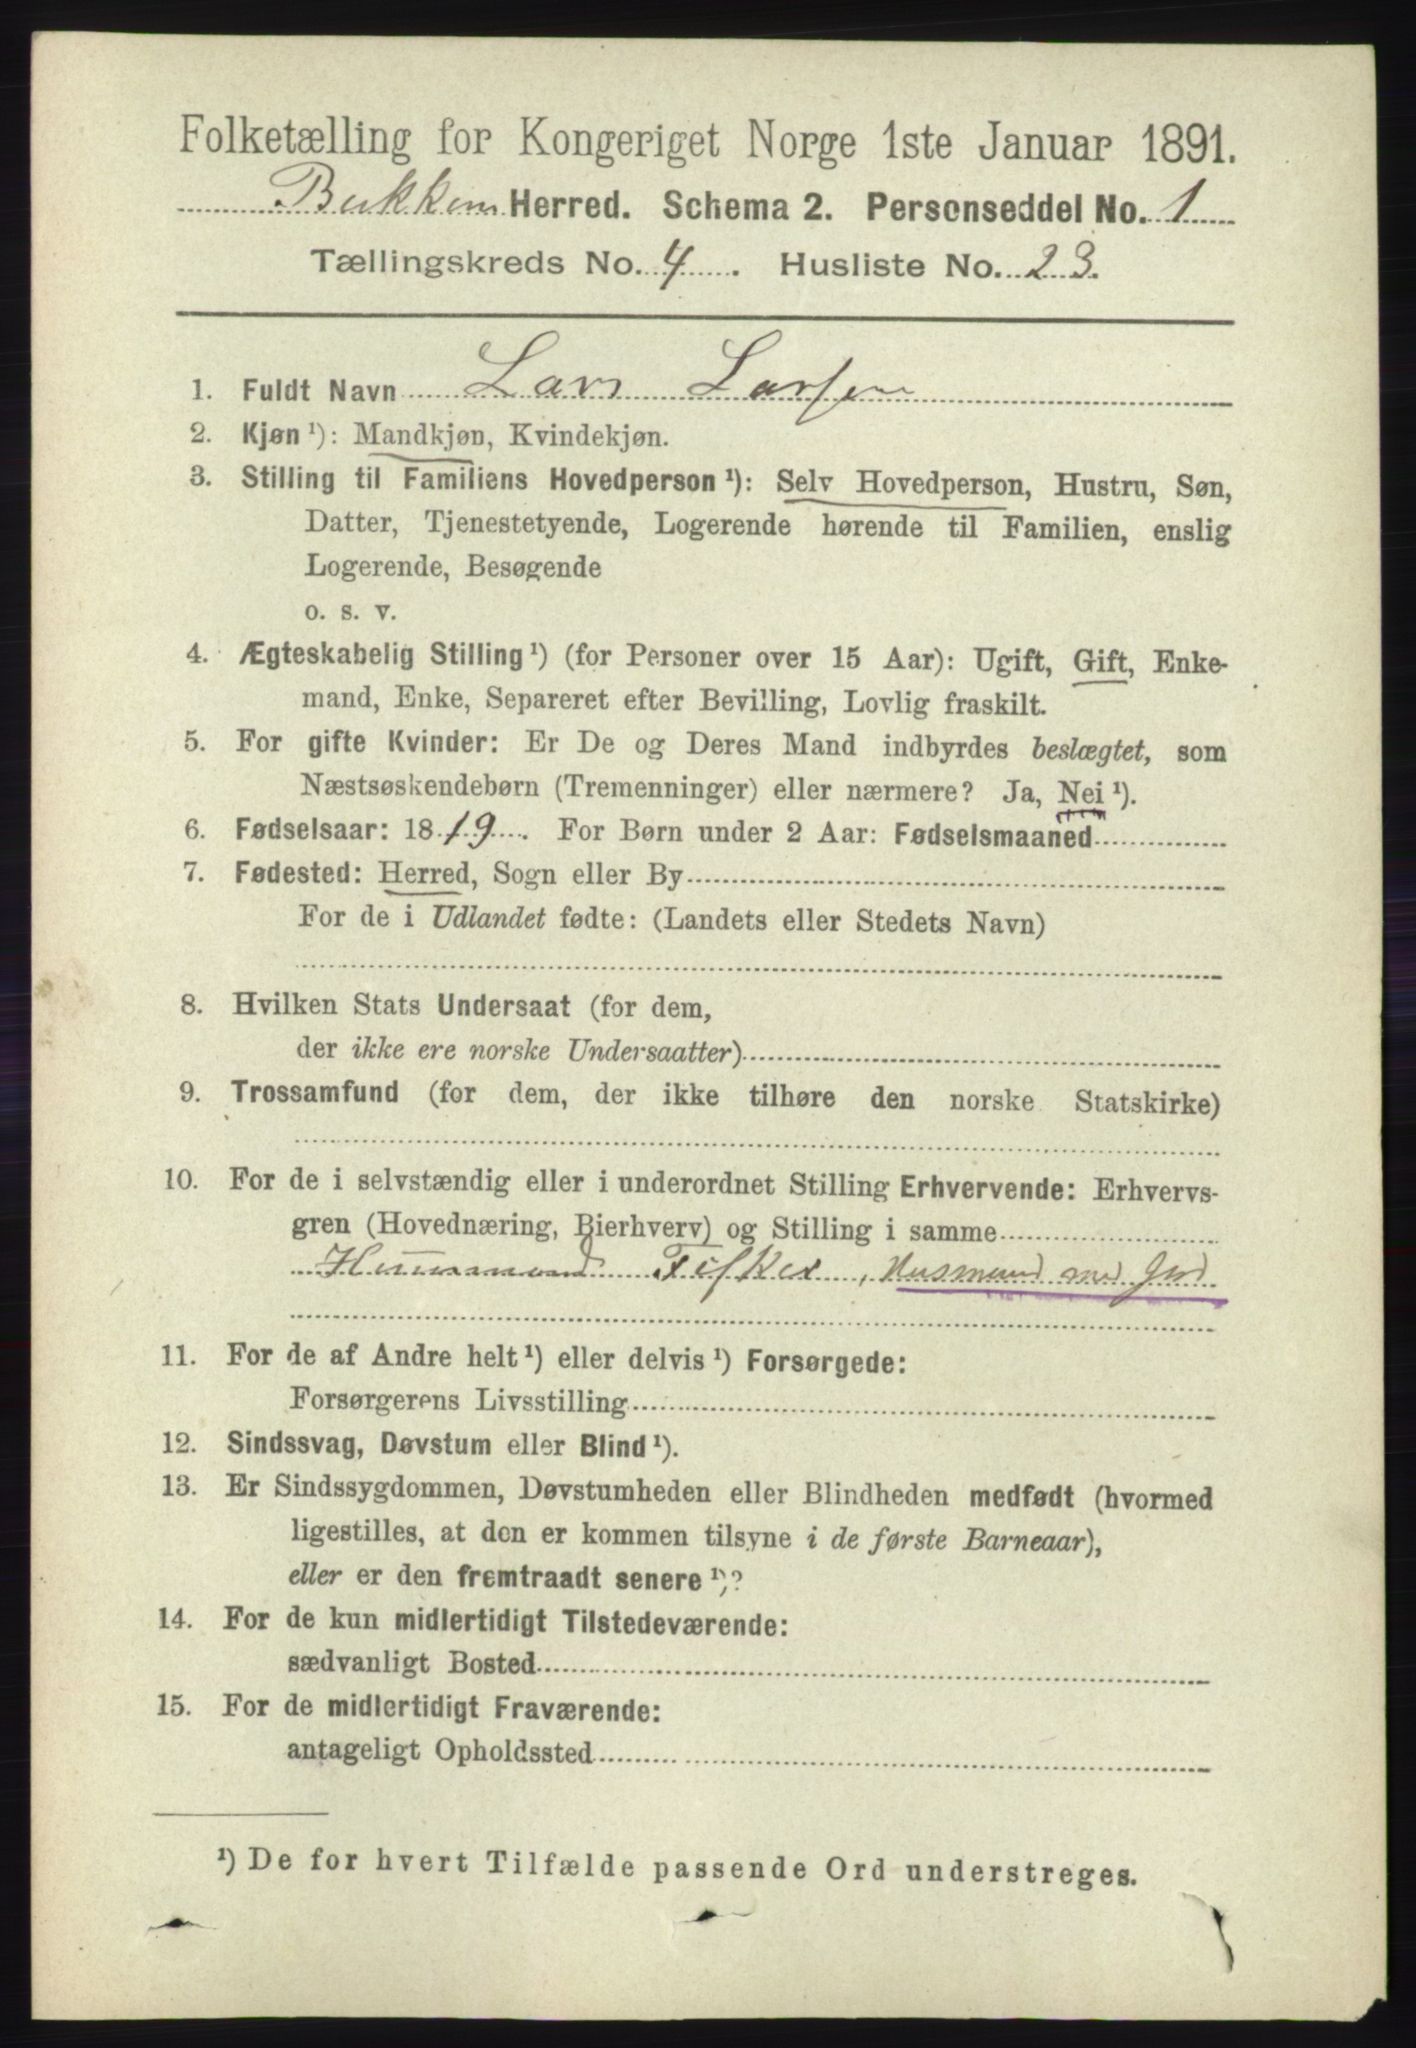 Folketælling for Kongeriget Norge 1ste Januar 1891.
Bukken Herred. Schema 2. Personseddel No. 1
Tællingskreds No. 4. Husliste No. 23.
1. Fuldt Navn Lars Larsen
2. Kjøn ¹): Mandkjøn, Kvindekjøn.
3. Stilling til Familiens Hovedperson ¹): Selv Hovedperson, Hustru, Søn,
Datter, Tjenestetyende, Logerende hørende til Familien, enslig
Logerende, Besøgende
o. s. v.
4. Ægteskabelig Stilling ¹) (for Personer over 15 Aar): Ugift, Gift, Enke-
mand, Enke, Separeret efter Bevilling, Lovlig fraskilt.
5. For gifte Kvinder: Er De og Deres Mand indbyrdes beslægtet, som
Næstsøskendebørn (Tremenninger) eller nærmere? Ja, Nei ¹).
6. Fødselsaar: 1819. For Børn under 2 Aar: Fødselsmaaned
7. Fødested: Herred, Sogn eller By
For de i Udlandet fødte: (Landets eller Stedets Navn)
8. Hvilken Stats Undersaat (for dem,
der ikke ere norske Undersaatter)
9. Trossamfund (for dem, der ikke tilhøre den norske Statskirke)
10. For de i selvstændig eller i underordnet Stilling Erhvervende: Erhvervs-
gren (Hovednæring, Bierhverv) og Stilling i samme
Huusmand Fisker, Husmand med Jord
11. For de af Andre helt ¹) eller delvis ¹) Forsørgede:
Forsørgerens Livsstilling
12. Sindssvag, Døvstum eller Blind ¹).
13. Er Sindssygdommen, Døvstumheden eller Blindheden medfødt (hvormed
ligestilles, at den er kommen tilsyne i de første Barneaar),
eller er den fremtraadt senere ¹)?
14. For de kun midlertidigt Tilstedeværende:
sædvanligt Bosted
15. For de midlertidigt Fraværende:
antageligt Opholdssted
¹) De for hvert Tilfælde passende Ord understreges.